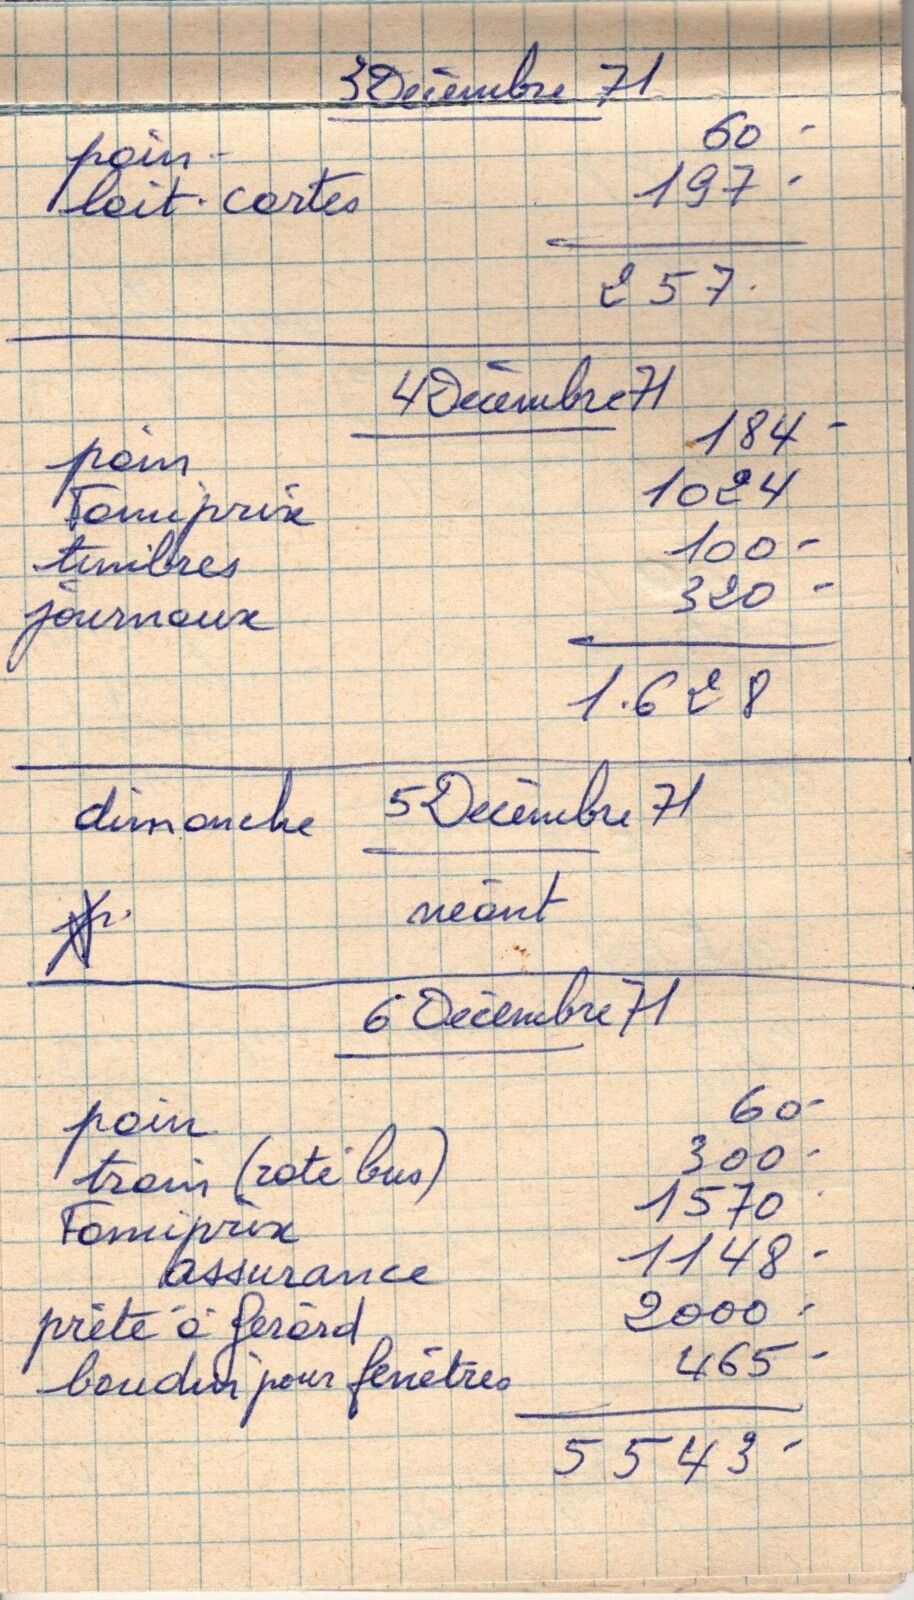 3 Décembre 71
pain - 60 -
lait - cartes 197 -
257.
4 Décembre 71
pain 184 -
Famiprix 1024
timbres 100 -
journaux 320 -
1.628
dimanche 5 Décembre 71
néant
6 Décembre 71
pain 60 -
train (raté bus) 300 -
Famiprix 1570
assurance 1148 -
prêté à Gérard 2000 -
boudin pour fenêtres 465 -
5543 -